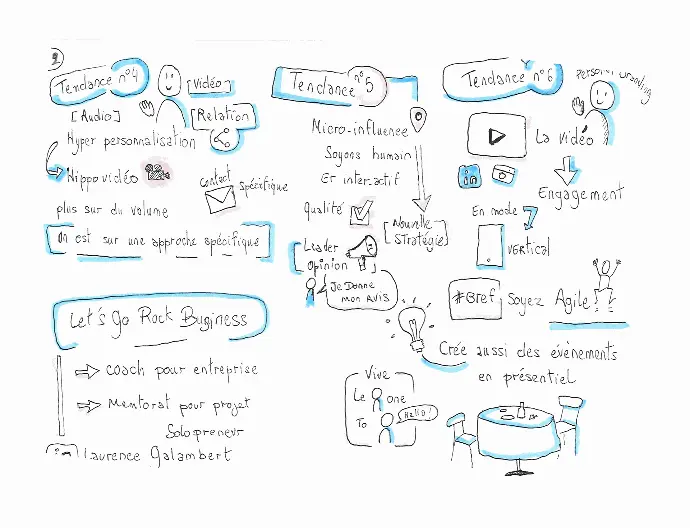 2
Tendance n°4
[Vidéo]
[Audio]
[Relation]
Hyper personnalisation
Hippovidéo
Contact
spécifique
plus sur du volume
On est sur une approche spécifique
Let's Go Rock Business
Coach pour entreprise
Mentorat pour projet
Solopreneur
in Laurence Galambert
Tendance n°5
Micro-influence
Soyons humain
Et interactif
Qualité
[Nouvelle
Stratégie]
[Leader
Opinion]
Je Donne
mon AVIS
Vive
Le one
To
Hello !
Tendance n°6
La vidéo
in
Engagement
En mode
vertical
#Bref Soyez Agile
Crée aussi des évènements
en présentiel